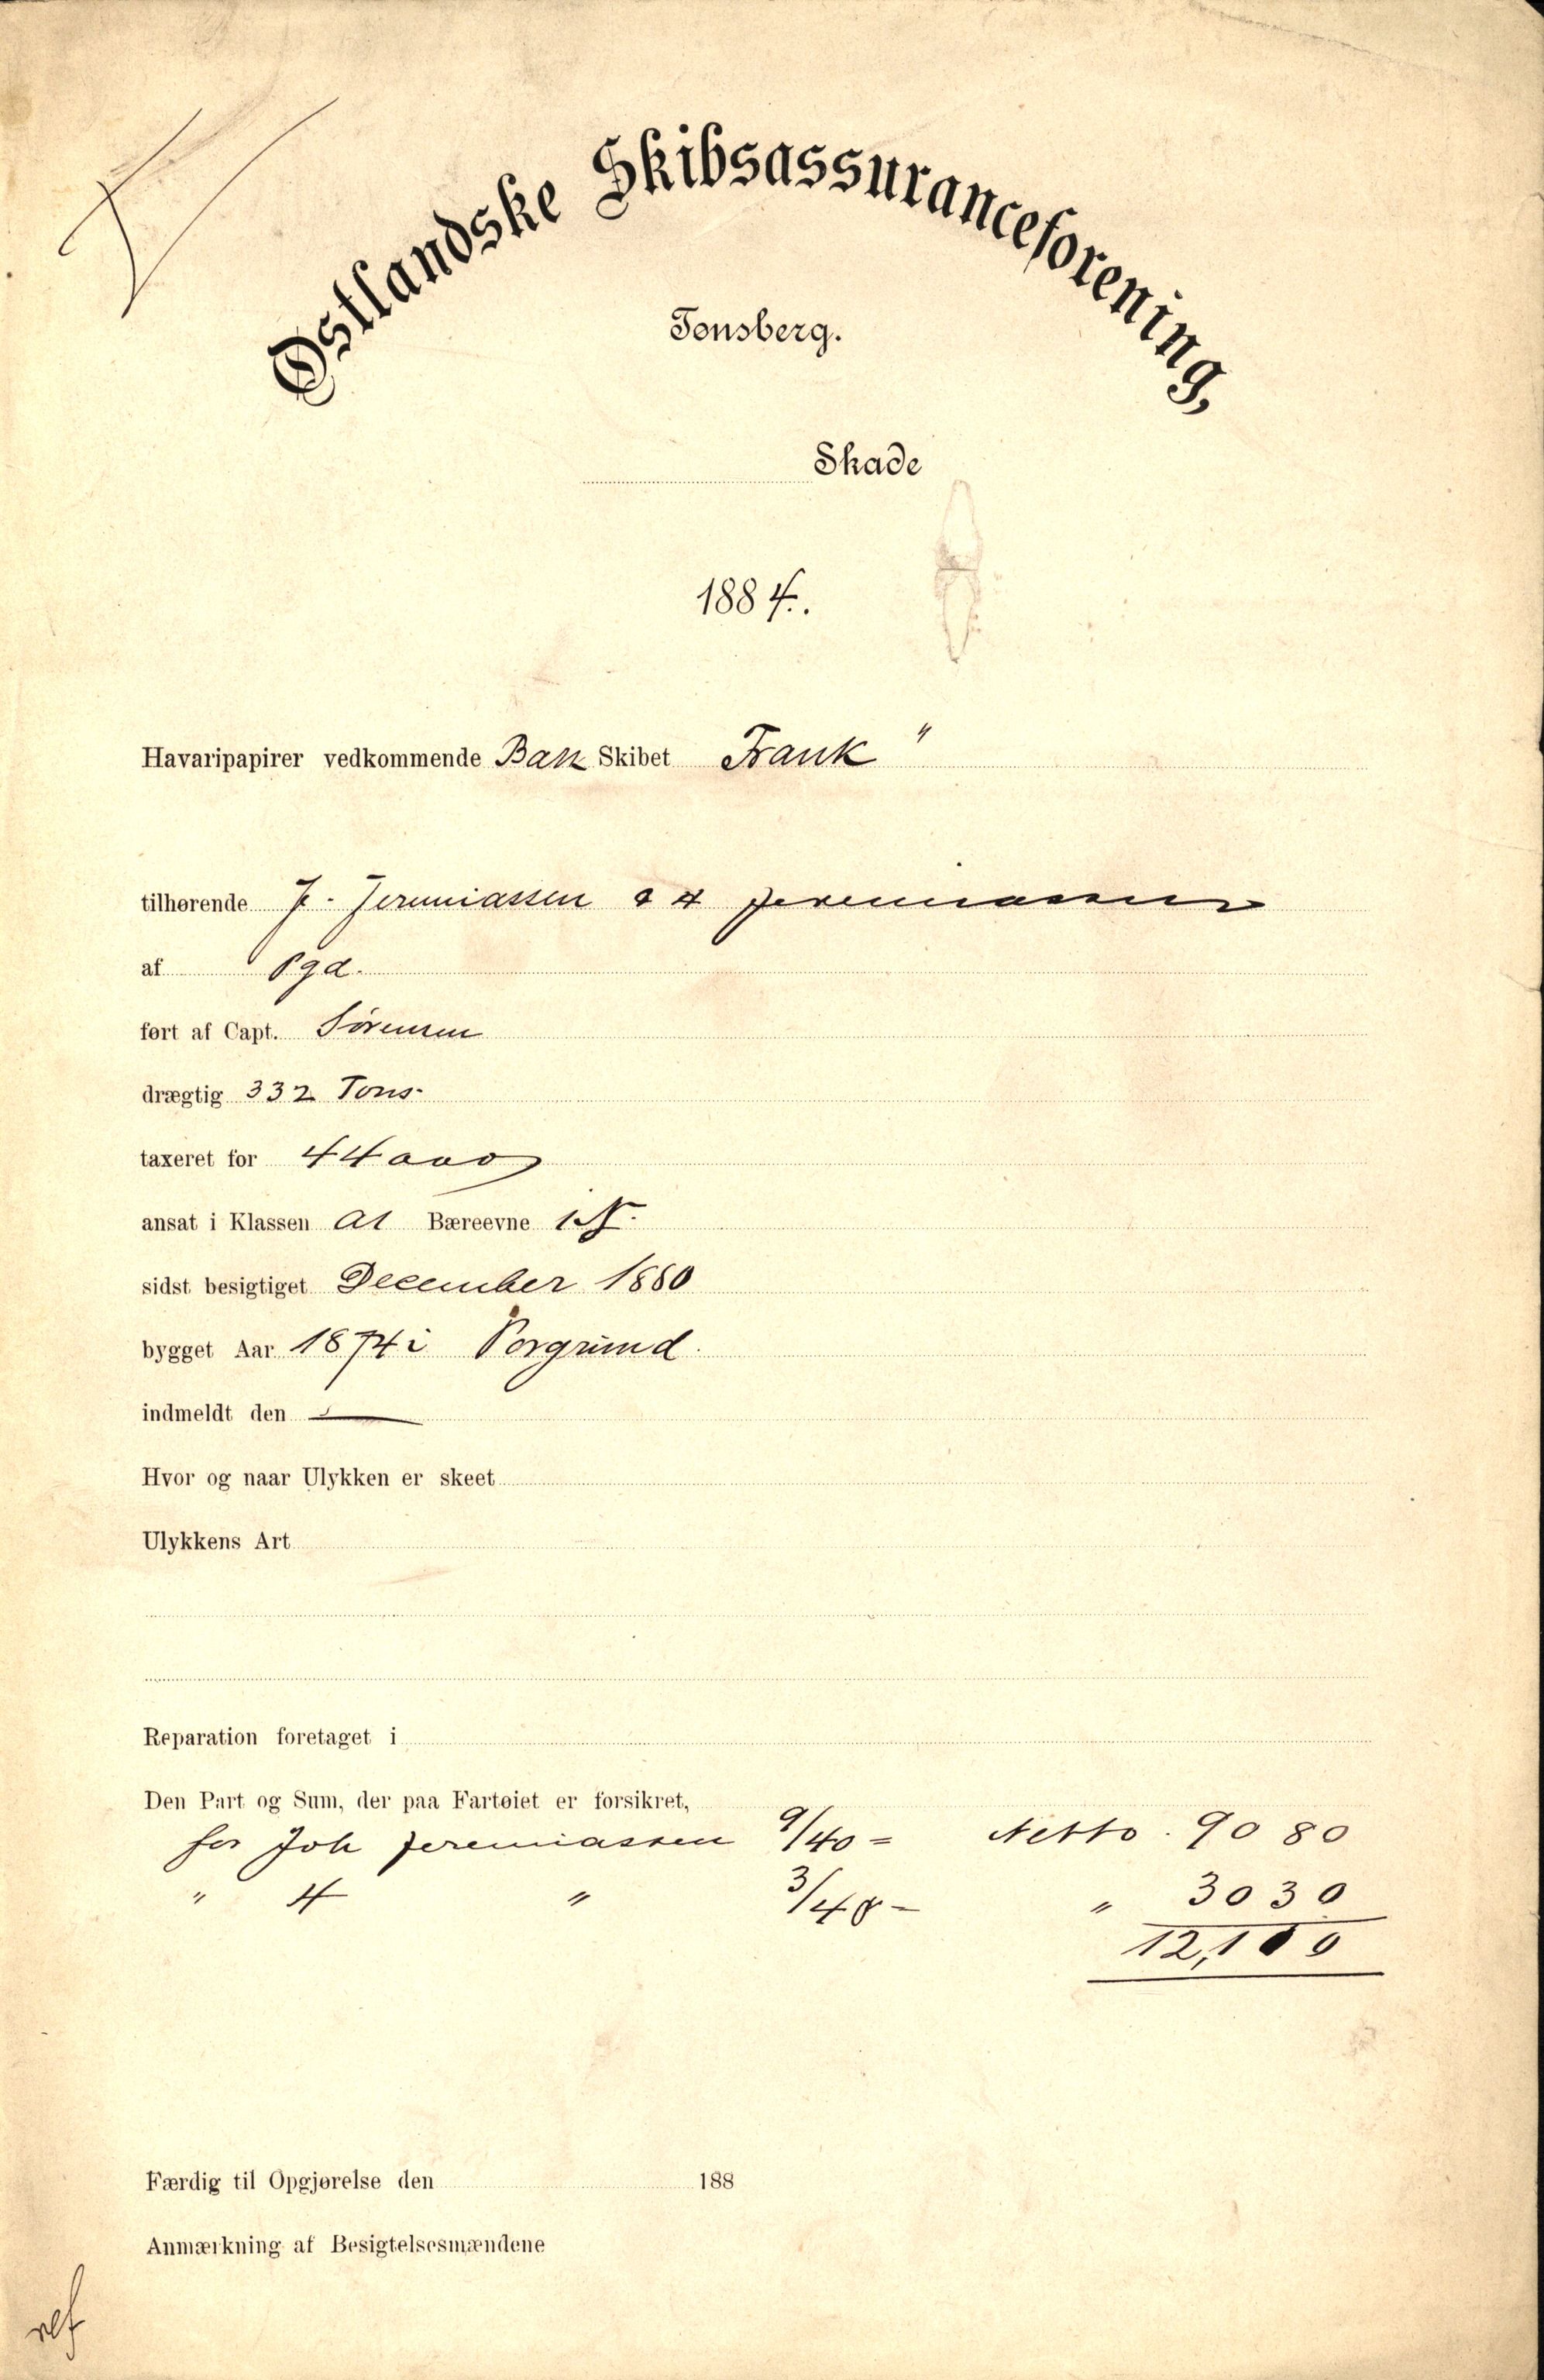 Østlandske Skibsassuranceforening,
Tønsberg.
Skade
1884.
Havaripapirer vedkommende Bark Skibet Frank"
tilhørende J. Jeremiassen & H Jeremiassen
af Pgd.
ført af Capt. Sørensen
drægtig 332 Tons.
taxeret for 44000
ansat i Klassen A1 Bæreevne
sidst besigtiget December 1880
bygget Aar 1874 i Porgrund.
indmeldt den —
Hvor og naar Ulykken er skeet
Ulykkens Art
Reparation foretaget i
Den Part og Sum, der paa Fartøiet er forsikret,
for Joh Jeremiassen 9/40 = Netto. 9080
" H " 3/40 - " 3030
12,100
Færdig til Opgjørelse den 188
Anmærkning af Besigtelsesmændene
ref